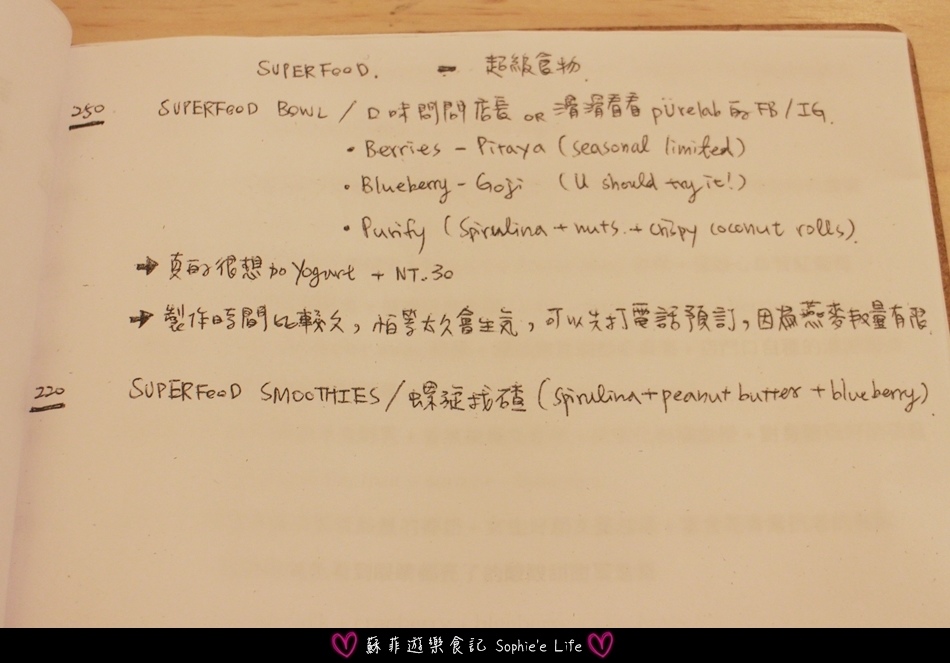 SUPERFOOD. - 超級食物.
250 SUPERFOOD BOWL / 口味問問店長 OR 滑滑看看 pürelab的 FB / IG.
• Berries - Pitaya (seasonal limited)
• Blueberry - Goji (U should try it!)
• Purify (Spirulina + nuts + crispy coconut rolls).
➡ 真的很想加 Yogurt + NT.30
➡ 製作時間比較久，怕等太久會生氣，可以先打電話預訂，因為燕麥數量有限.
220 SUPERFOOD SMOOTHIES / 螺旋找碴 (Spirulina + peanut butter + blueberry).
蘇菲遊樂食記 Sophie'e Life